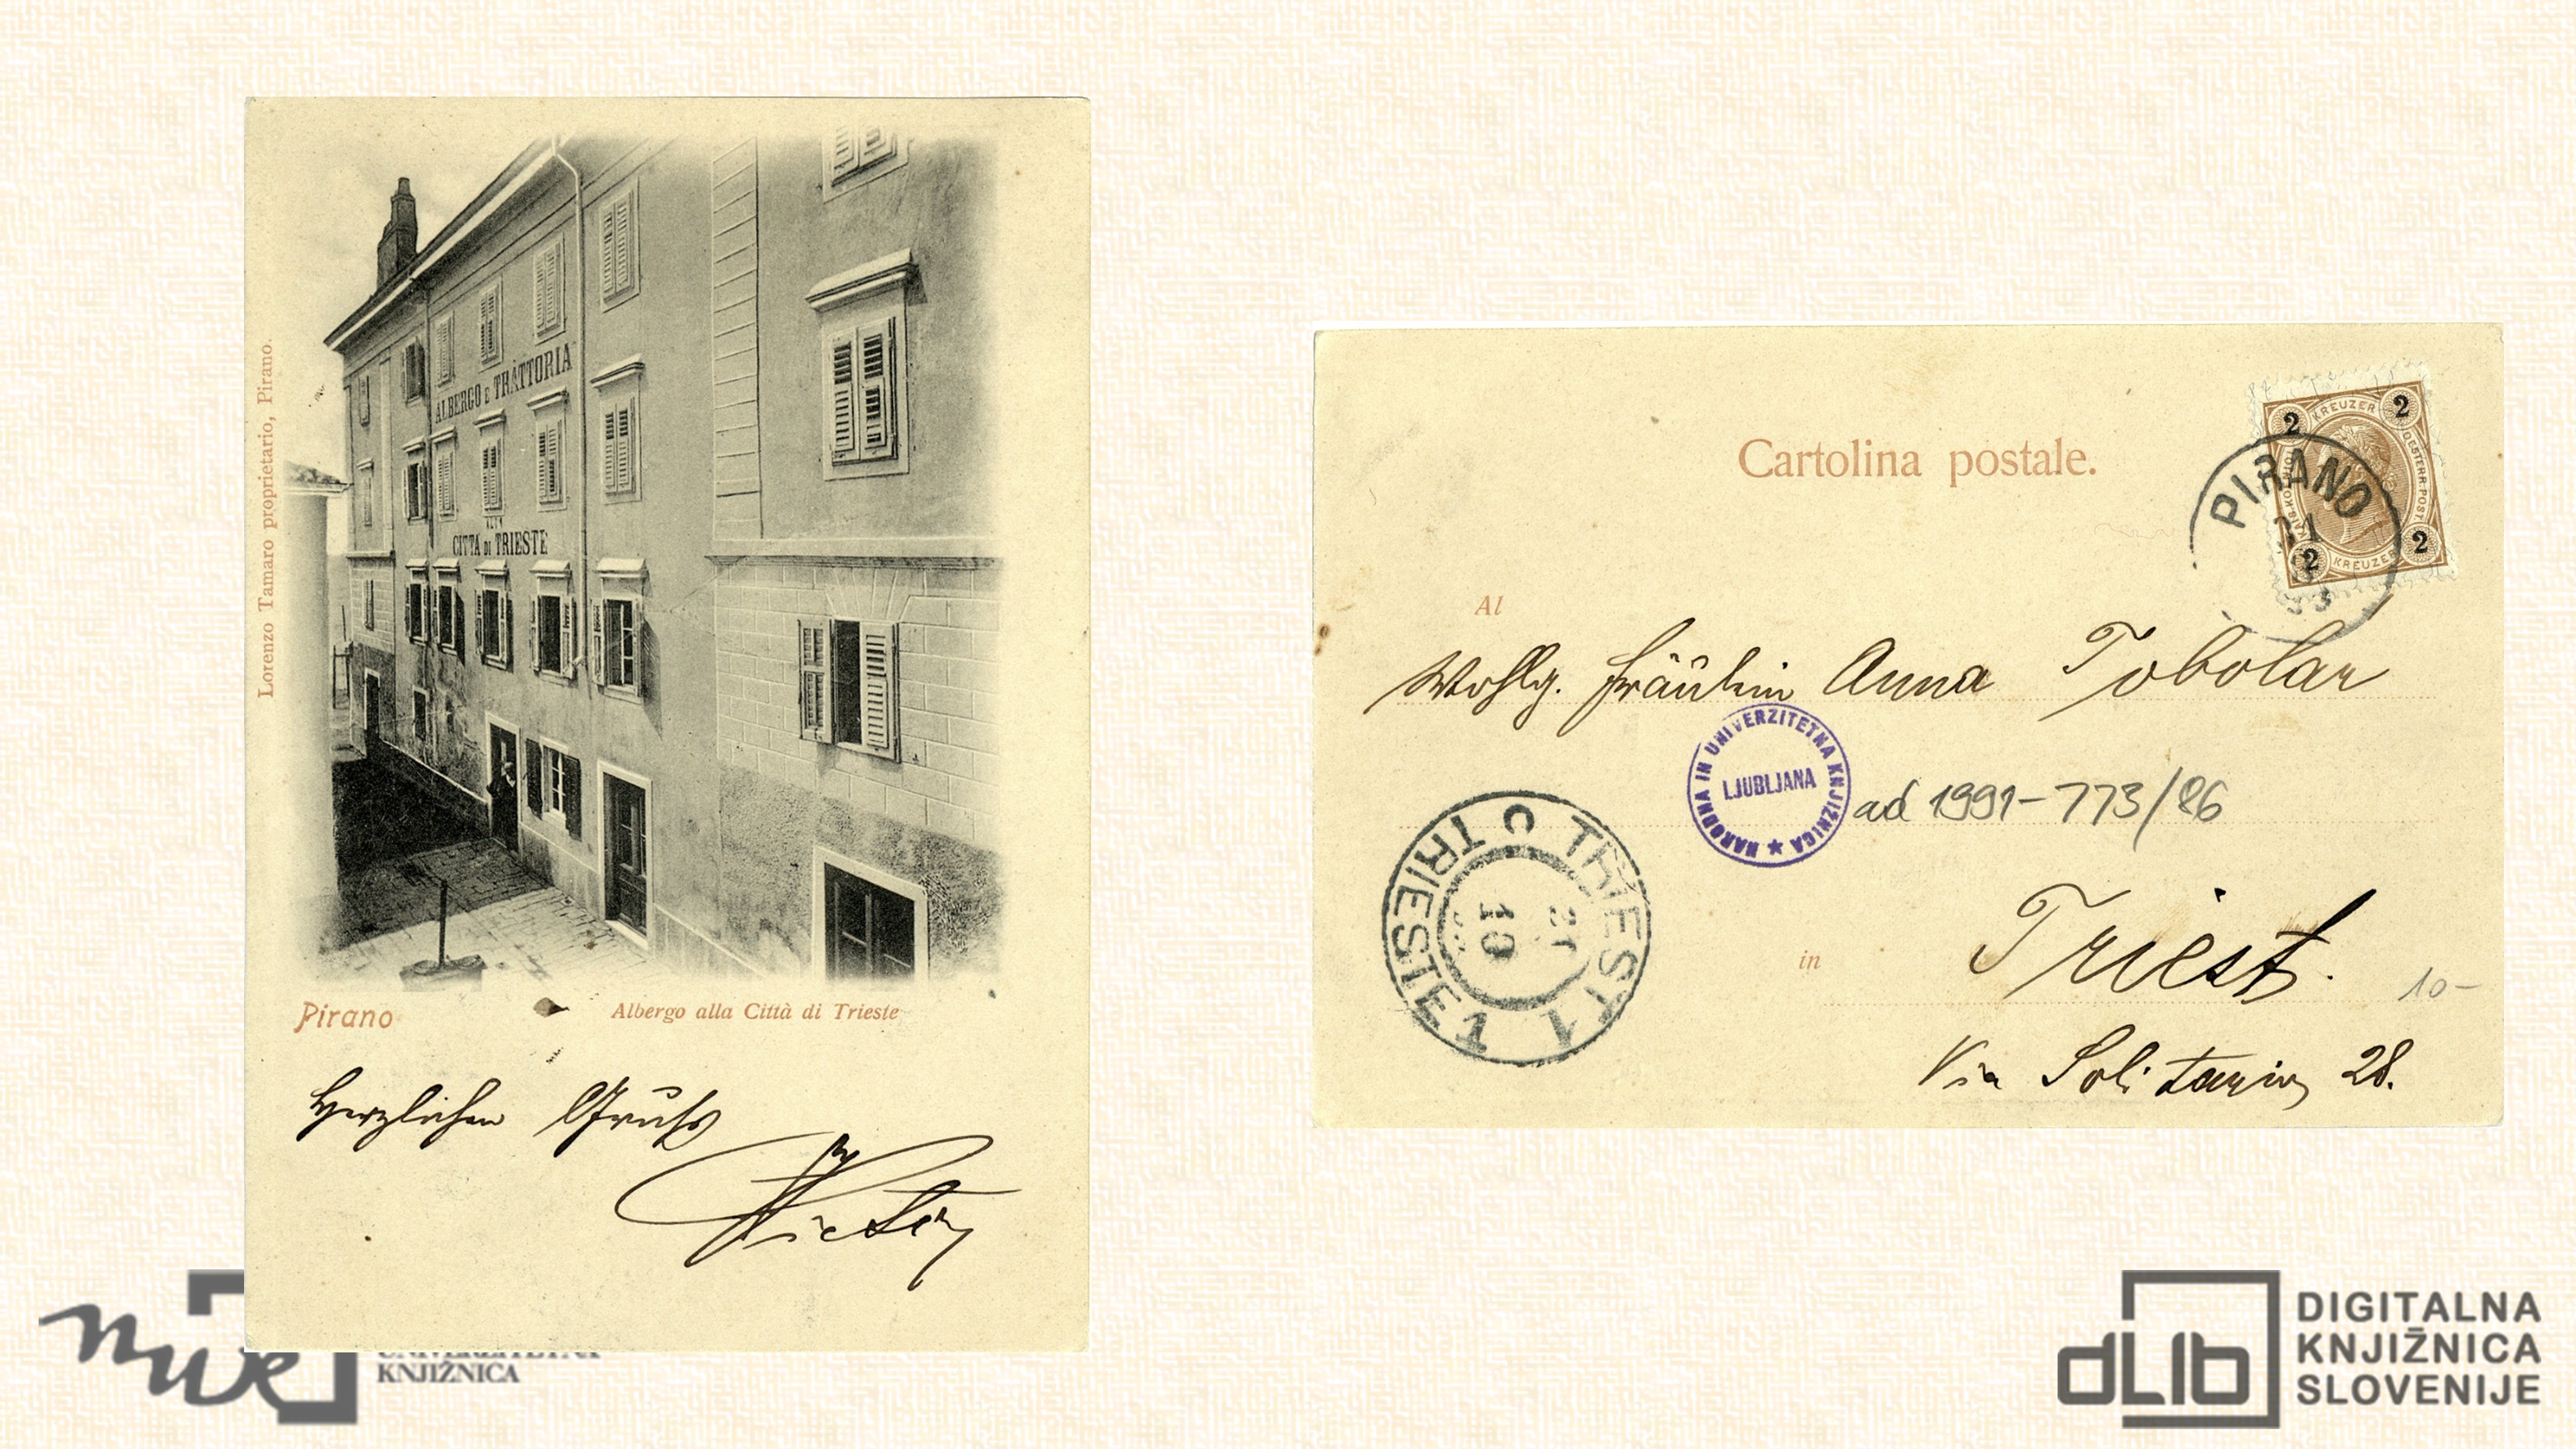 Lorenzo Tamaro proprietario, Pirano.
ALBERGO E TRATTORIA
CITTÀ DI TRIESTE
Pirano
Albergo alla Città di Trieste
Herzlichen Gruß
Cartolina postale.
2 KREUZER 2
OESTERR. POST
2 KREUZER 2
PIRANO
Al
Wohlg. Fräulein Anna Tobolar
NARODNA IN UNIVERZITETNA KNJIŽNICA
LJUBLJANA
ad 1991-773/86
TRIEST 1
TRIESTE 1
C
10
in
Triest.
10-
Via Solitaria 28.
KNJIŽNICA
dLib
DIGITALNA
KNJIŽNICA
SLOVENIJE